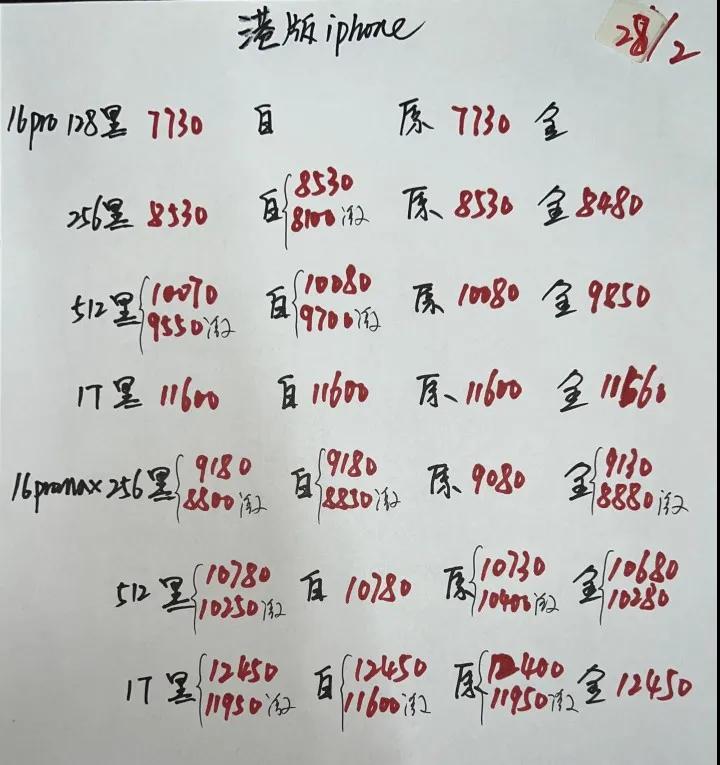 港版iphone 28/2
16pro 128黑 7730 白 原 7730 金
256黑 8530 白{8530 8100激 原 8530 金 8480
512黑{10070 9550激 白{10080 9700激 原 10080 金 9850
1T 黑 11600 白 11600 原 11600 金 11560
16promax 256黑{9180 8800激 白{9180 8830激 原 9080 金{9130 8880激
512黑{10780 10250激 白 10780 原{10730 10400激 金{10680 10280
1T 黑{12450 11950激 白{12450 11600激 原{12400 11950激 金 12450